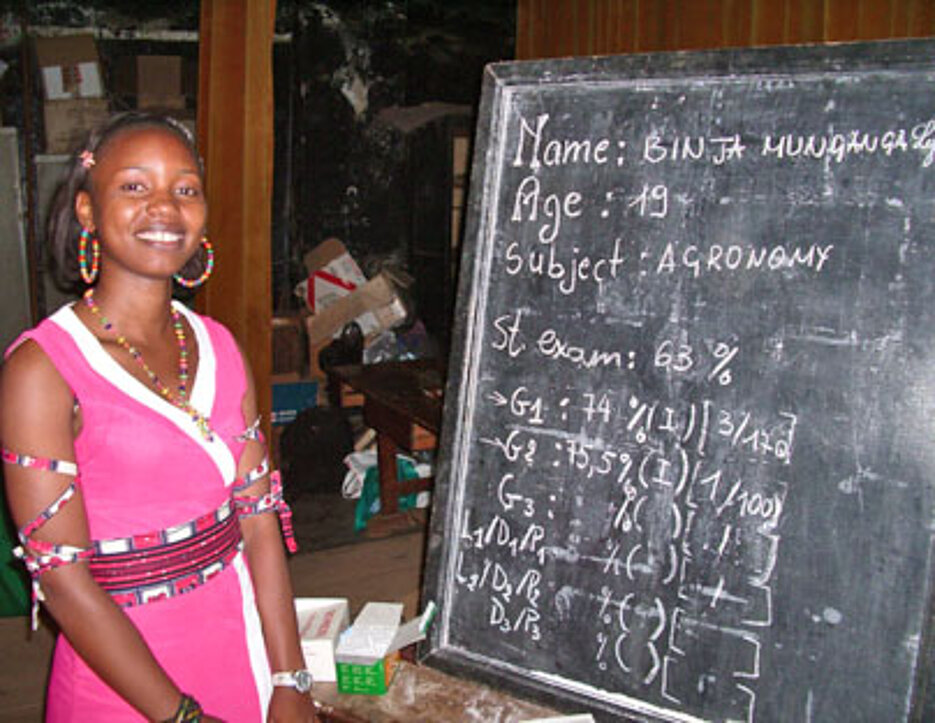 Name: BINJA MUNGANGA
Age: 19
Subject: AGRONOMY
St exam: 63 %
→G1 : 74 %(I) [3/170]
→G2 : 75,5%(I) [1/100]
G3 : %( ) [ / ]
L1/D1/P1 %( ) [ / ]
L2/D2/P2 %( ) [ ]
D3/P3 %( ) [ ]